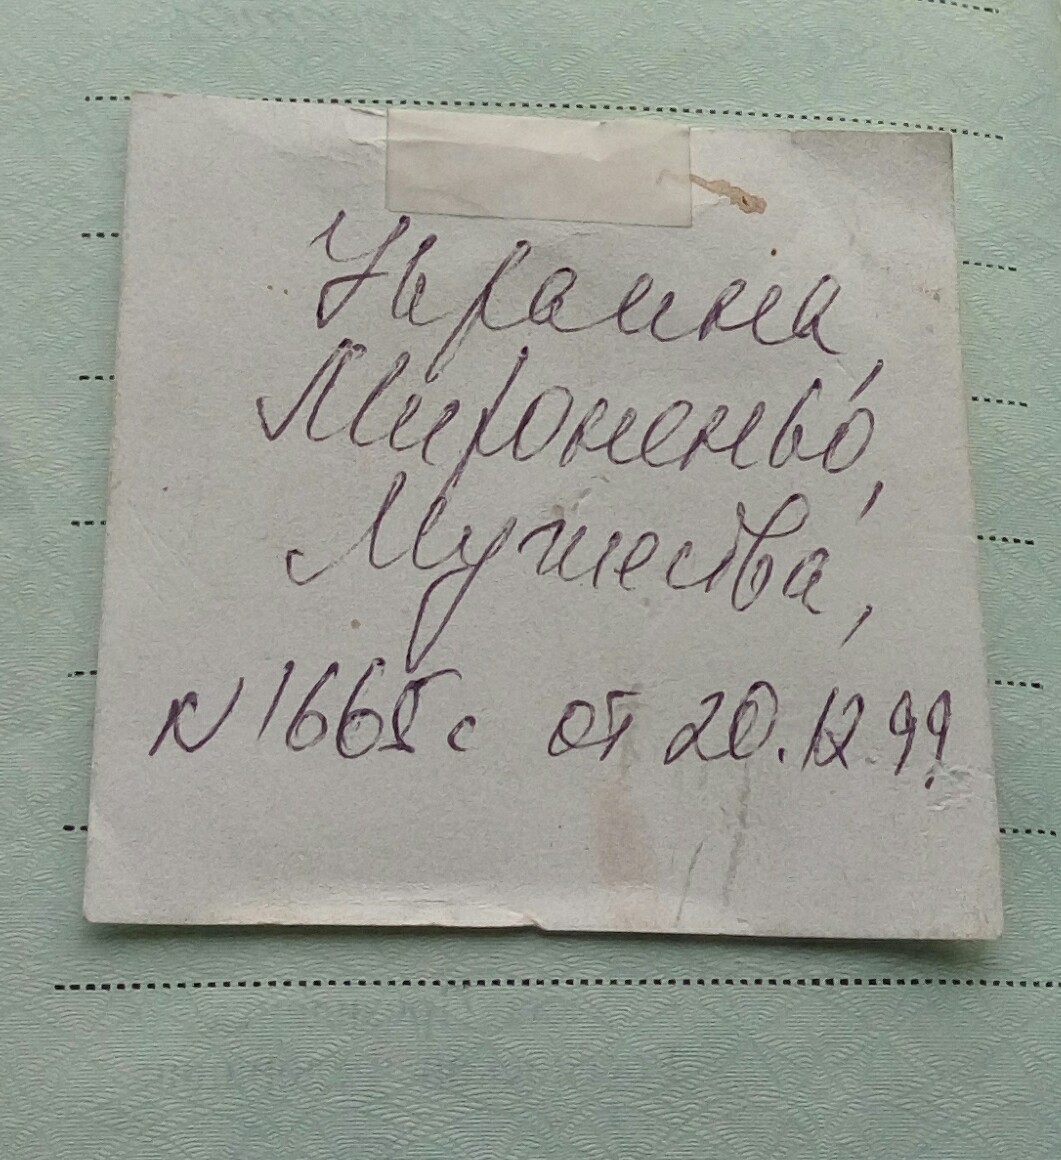 Украина,
Мироненко,
Мужества,
N 1665 с от 20.12.99.